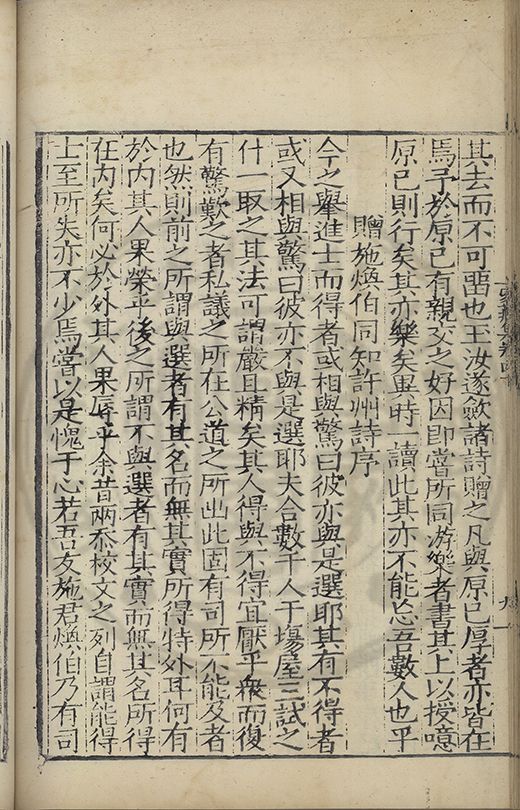 其去而不可畱也王汝遂斂諸詩贈之凡與原巳厚者亦皆在
焉予於原巳有親交之好因即嘗所同游樂者書其上以授噫
原巳則行矣其亦樂矣異時一讀此其亦不能忘吾數人也乎
贈施煥伯同知許州詩序
今之舉進士而得者或相與驚曰彼亦與是選耶其有不得者
或又相與驚曰彼亦不與是選耶夫合數千人于塲屋三試之
什一取之其法可謂嚴且精矣其人得與不得宜厭乎衆而復
有驚歎之者私議之所在公道之所出此固有司所不能及者
也然則前之所謂與選者有其名而無其實所得特外耳何有
於内其人果榮乎後之所謂不與選者有其實而無其名所得
在内矣何必於外其人果辱乎余昔兩忝校文之列自謂能得
士至所失亦不少焉嘗以是愧于心若吾友施君煥伯乃有司